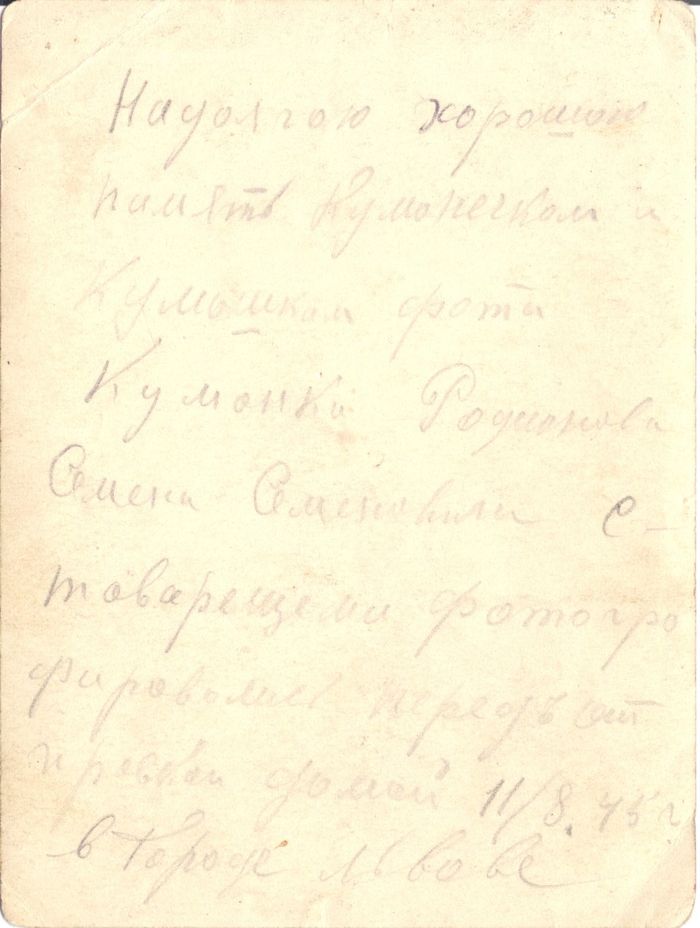 Надолгою хорошою
память Кумонечкам и
Кумошкам фото
Кумонка Родионова
Семена Семеновича с-
товарещеми фотогро
фировались передъ от
правкой домой 11/8. 45 г
в городе Львове